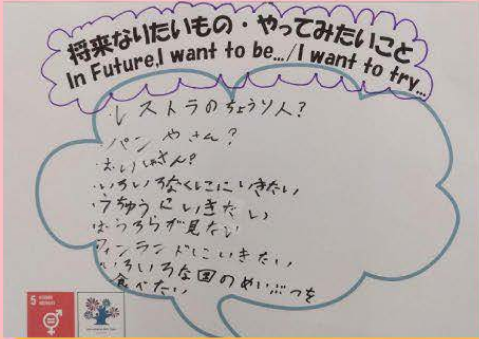 将来なりたいもの・やってみたいこと
In Future,I want to be.../I want to try...
・レストラのちょうり人?
・パンやさん?
・おいしゃさん?
・いろいろなくににいきたい
・うちゅうにいきたい
・オーロラが見たい
・フィンランドにいきたい
・いろいろな国のめいぶつを
食べたい
5